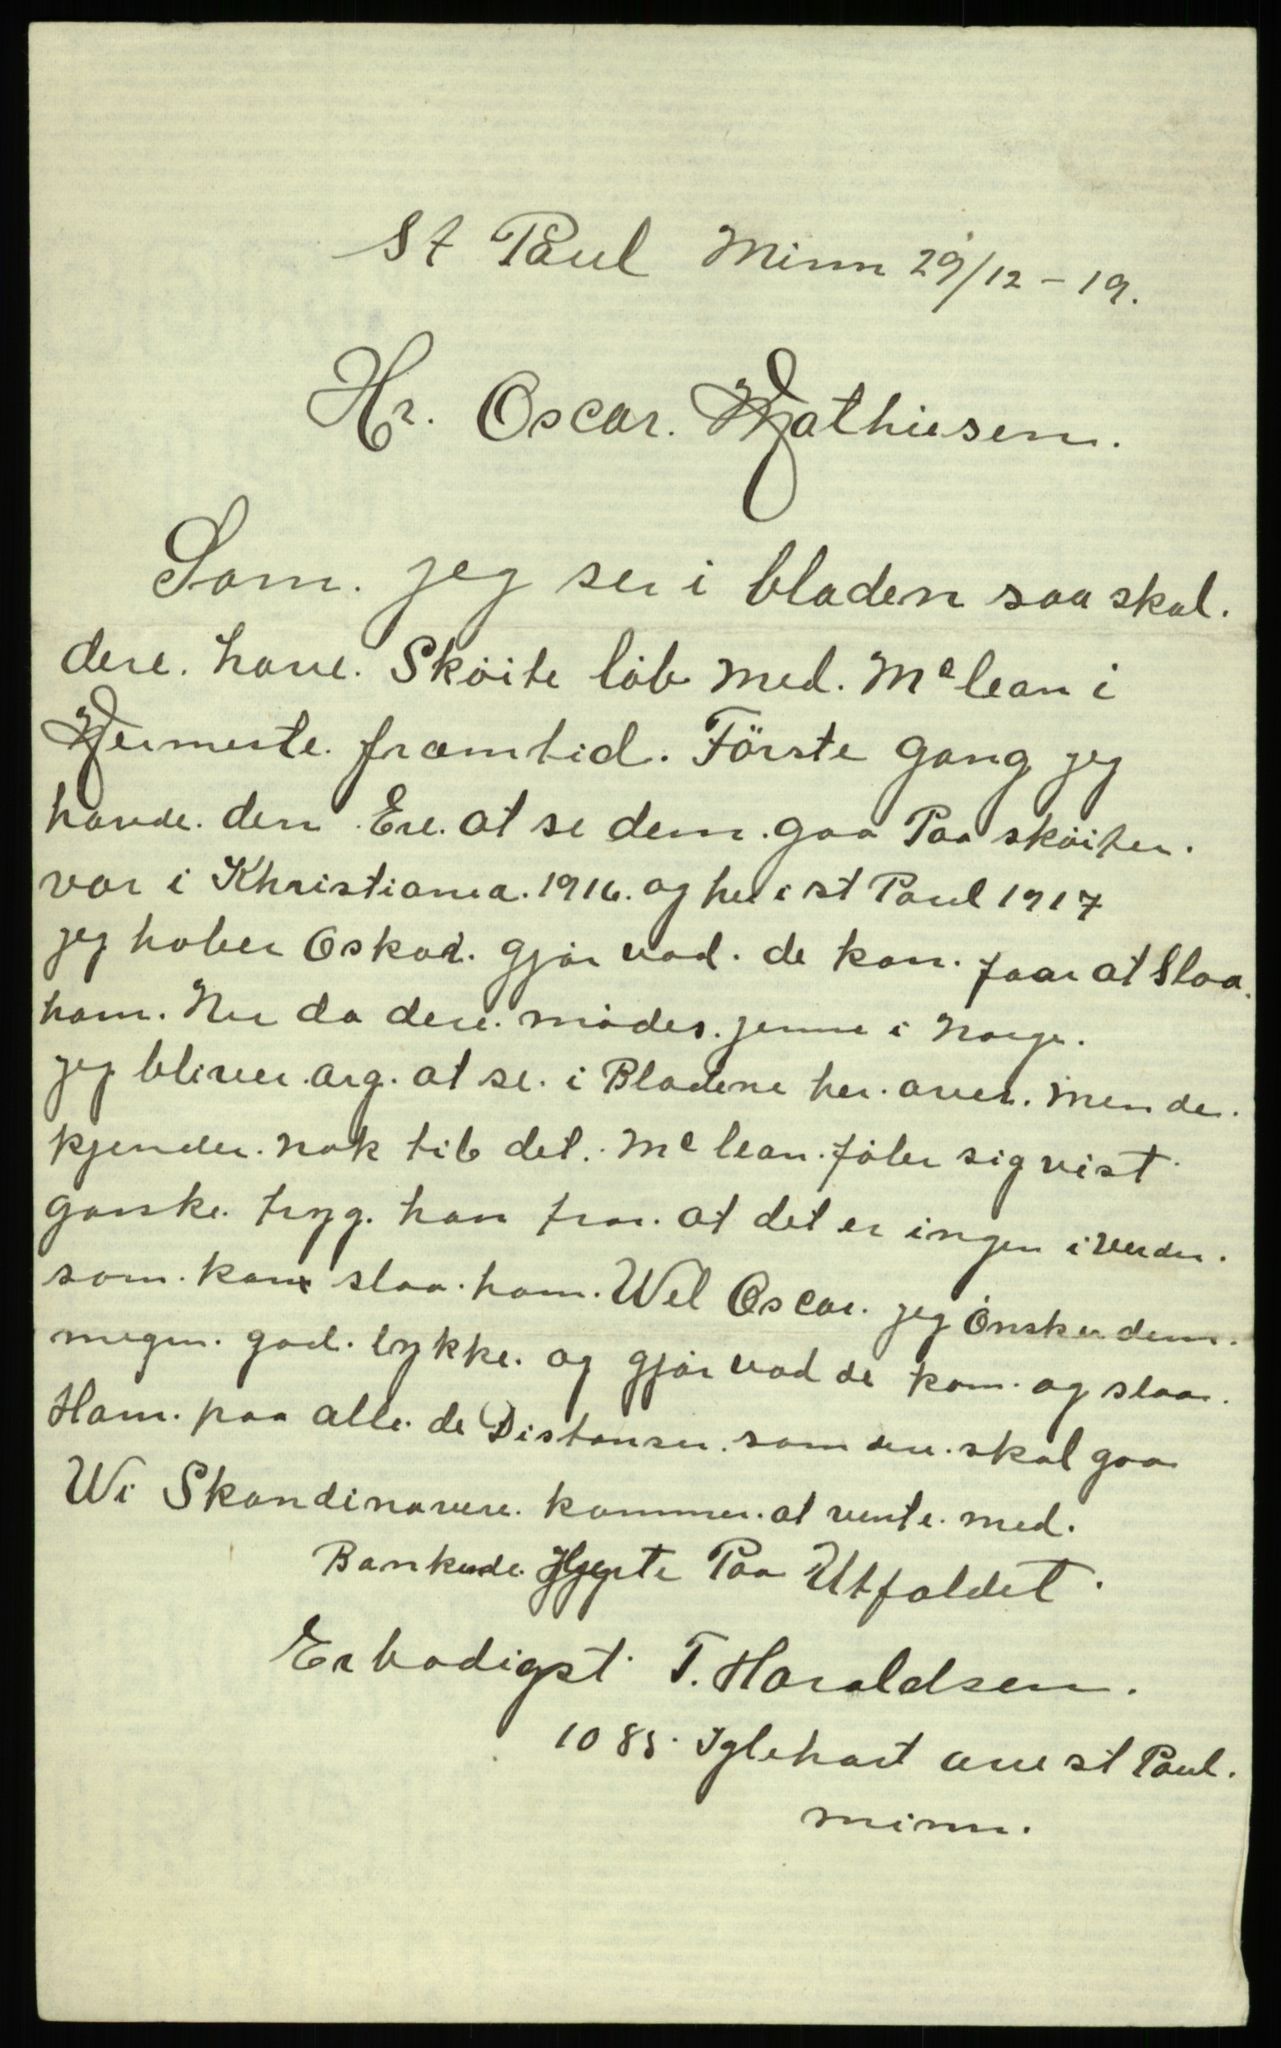 St Paul Minn 29/12 – 19.
Hr. Oscar. Mathiesen.
Som. jeg ser i bladen saa skal.
dere. have. Sköite löb med. Mc lean i
Nermeste. framtid. Förste gang jeg
havde. den. Ere. at se dem. gaa Paa sköiter.
var i Khristiania. 1916. og her i st Paul 1917
jeg hober Oskar. gjör vad. de kan. faar at Slaa.
ham. Nu da dere. mödes. jemme i Norge.
jeg bliver. arg. at se. i Bladene her. over. men de.
kjender. nok til det. Mc lean. föler sig vist
ganske. tryg. han tror. at det er ingen i verden.
som. kan slaa. ham. Wel Oscar. jeg Önsker dem.
megen. god. lykke. og gjör vad de kan. og slaa.
Ham. paa alle. de Distanser. som dere. skal gaa
Wi Skandinavere. kommer. at vente. med.
Bankende. Hjerte Paa Utfaldet.
Erbodigst T. Haraldsen.
1085. Iglehart ave st Paul.
minn.